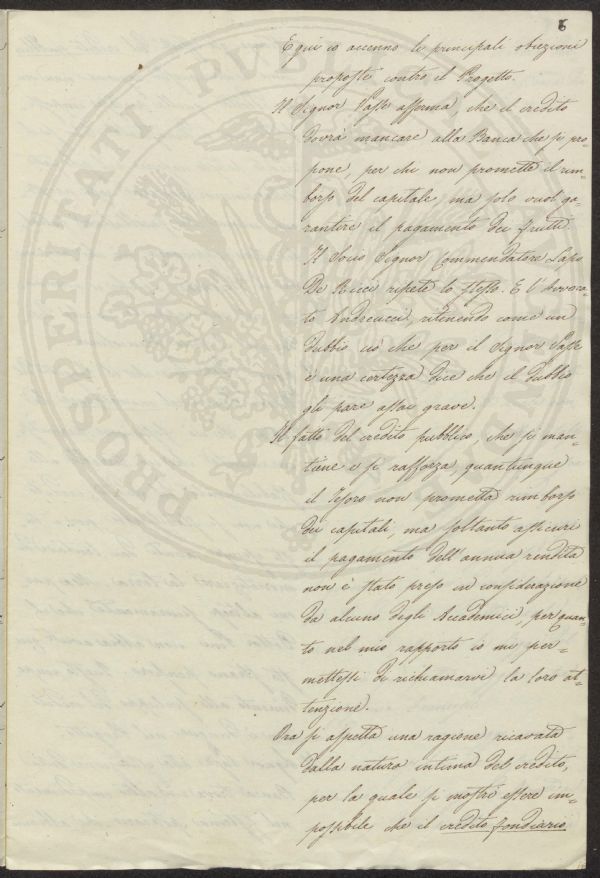 6
E qui io accenno le principali obiezioni
proposte contro il Progetto.
Il Signor Passe afferma, che il credito
dovrà mancare alla Banca che si pro=
pone, per chi non promette il rim=
borso del capitale, ma solo vuol ga=
rantire il pagamento dei frutti.
Il Socio Signor Commendatore Lapo
De Ricci ripete lo stesso. E l'Avvoca=
to Andreucci, ritenendo come un
dubbio ciò che per il Signor Passe
è una certezza dice che il dubbio
gli pare assai grave.
Il fatto del credito pubblico, che si man=
tiene e si rafforza, quantunque
il Tesoro non prometta rimborso
dei capitali, ma soltanto assicuri
il pagamento dell'annua rendita
non è stato preso in considerazione
da alcuno degli Accademici, per quan=
to nel mio rapporto io mi per=
mettessi di richiamarvi la loro at=
tenzione.
Ora si aspetta una ragione ricavata
dalla natura intima del credito,
per la quale si mostri essere im=
possibile che il credito fondiario
PROSPERITATI PUBLICAE